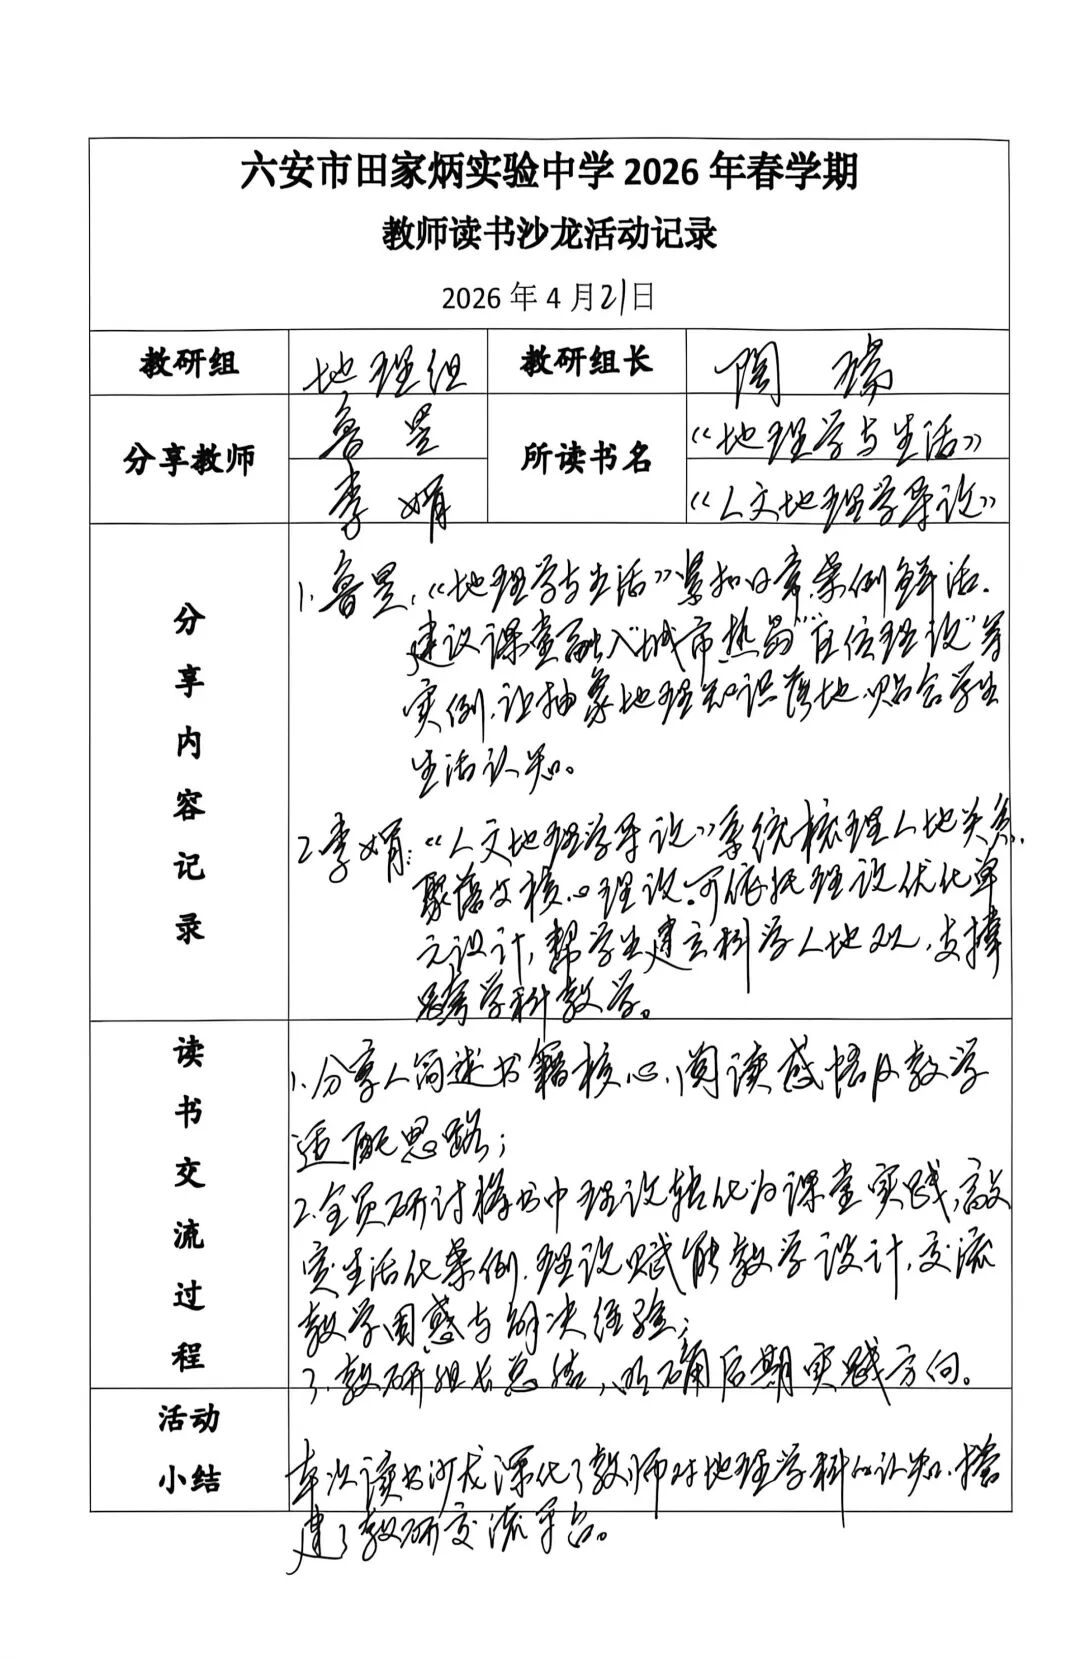 六安市田家炳实验中学 2026 年春学期
教师读书沙龙活动记录
2026 年 4 月 21 日
教研组 地理组 教研组长 陶 瑞
分享教师 鲁昱 所读书名 《地理学与生活》
李娟 《人文地理学导论》
分享内容记录
1. 鲁昱:《地理学与生活》紧扣日常,案例鲜活.
建议课堂融入“城市热岛”“区位理论”等
实例,让抽象地理知识落地,贴合学生
生活认知。
2. 李娟:《人文地理学导论》系统梳理人地关系,
聚落文核心理论.可依托理论优化单
元设计,帮学生建立科学人地观,支撑
跨学科教学。
读书交流过程
1. 分享人简述书籍核心、阅读感悟及教学
适配思路;
2. 全员研讨将书中理论转化为课堂实践,
实生活化案例.理论赋能教学设计,交流
教学困惑与解决经验;
3. 教研组长总结,明确后期实践方向。
活动小结
本次读书沙龙深化了教师对地理学科的认知,搭
建了教研交流平台。